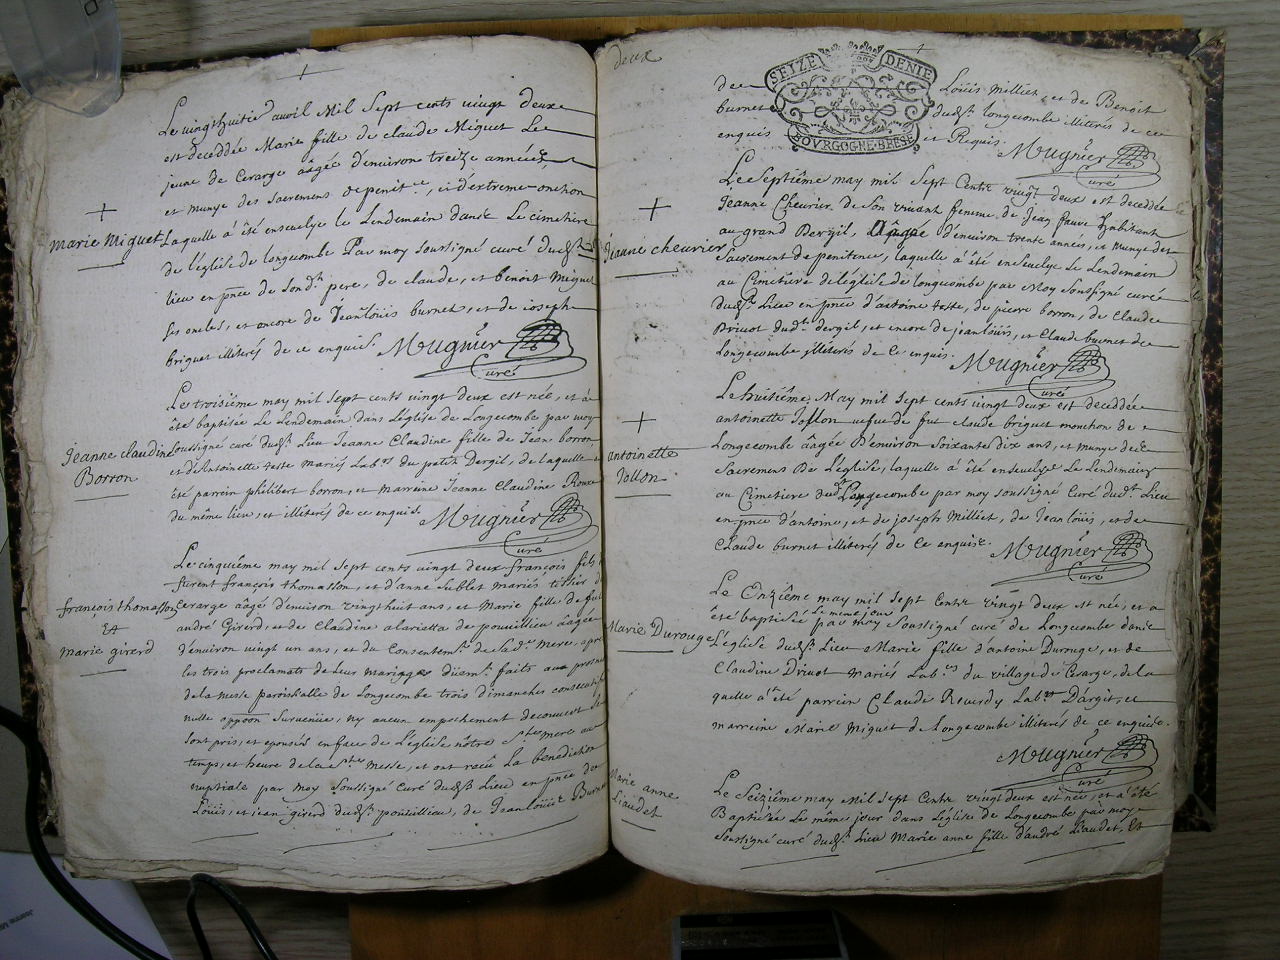 Le vingthuitie avril Mil Sept cents vingt deux
est deceddée Marie fille de claude Miguet Le
jeune de Cerarge aâgée d'environs treize années,
et munye des sacremens de penitce, et d'extreme-onction
marie Miguet
Laquelle a êté ensevelye le Lendemain dans Le cimetière
de l'église de longecombe Par moy soussigné curé dudt
lieu en pnce de sondt pere, de claude, et benoit Miguet
ses oncles, et ancore de Jeanloüis burnet, et de joseph
briguet illiterés de ce enquis Mugnier
Curé
Le troisième may mil sept cents vingt deux est née, et a
êté baptisée Le Lendemain dans l'église de Longecombe par moy
Jeanne claudine
Borron
soussigné curé dudt Lieu Jeanne Claudine fille de Jean borron
et d'Antoinette teste mariés Labrs du petit Dergil, de laquelle
êté parrein philibert borron, et marreine Jeanne Claudine
du même lieu, et illiterés de ce enquis Mugnier
Curé
Le cinquième may mil sept cents vingt deux françois fils
furent françois thomasson, et d'anne sublet mariés
françois thomasson
Et
marie girerd
Cerarge aâgé d'environ vingthuit ans, et Marie fille de fut
andré Girerd, et de Claudine alarietta de poueillieu aagée
d'environ vingt un ans, et du Consentemt de sade mere, apres
les trois proclamats de leurs mariages düemt faits aux prosnes
de la messe paroissialle de Longecombe trois dimanches consecutifs
nulle oppoon survenüe, ny aucun empechement decouvert se
sont pris, et epousés en face de l'église nôtre ste mere au
temps, et heure de la ste Messe, et ont reçû la benediction
nuptiale par moy soussigné curé dudt Lieu en pnce de
Loüis, et jean girerd dudt poueillieu, de Jeanloüis Burnet
deux
SEIZE DENIE
BOVRGOGNE BRESSE
de Loüis Milliet, et de Benoit
burnet dudt longecombe illiterés de ce
enquis et Requis. Mugnier
Curé
Le septième may mil sept Cents vingt deux est deceddée
Jeanne chevrier
Jeanne Chevrier de son vivant femme de Jean faure habitant
au grand Dergil, aâgée d'environ trente années, et munye des
sacrement de penitence, laquelle a êté ensevelye Le Lendemain
au Cimetière de l'église de longecombe par Moy soussigné curé
dudt Lieu en pnce d'antoine teste, de pierre borron, de Claude
Drivot dudt dergil, et encore de jeanloüis, et Claude burnet de
Longecombe illiterés de Ce enquis. Mugnier
Curé
Le huitième May mil sept cents vingt deux est deceddée
antoinette
Jollon
antoinette Jollon vefve de fut claude briguet mouchon de
Longecombe aâgée d'environ soixante dix ans, et munye des
sacremens de l'église, laquelle a êté ensevelye Le Lendemain
au Cimetiere dudt Longecombe par moy soussigné Curé dudt Lieu
en pnce d'antoine, et de joseph Milliet, de Jeanloüis, et de
Claude burnet illiterés de Ce enquis. Mugnier
Curé
Le Onzième may mil sept Cents vingt deux est née, et a
le meme jour
êté baptisée par moy soussigné curé de Longecombe dans
Marie Durouge
L'église dudt Lieu Marie fille d'antoine Durouge, et de
Claudine Drivot Mariés Labrs du village de Cerarge, de la
quelle a êté parrein Claude Reverdy Labr D'argit, et
marreine Marie Miguet de Longecombe illiterés de ce enquis.
Mugnier
Curé
Marie anne
Liaudet
Le Seizième may Mil sept Cents vingt deux est née, et a êté
Baptisée Le même jour dans L'église de Longecombe par moy
soussigné curé dudt Lieu Marie anne fille d'andré Liaudet, Et